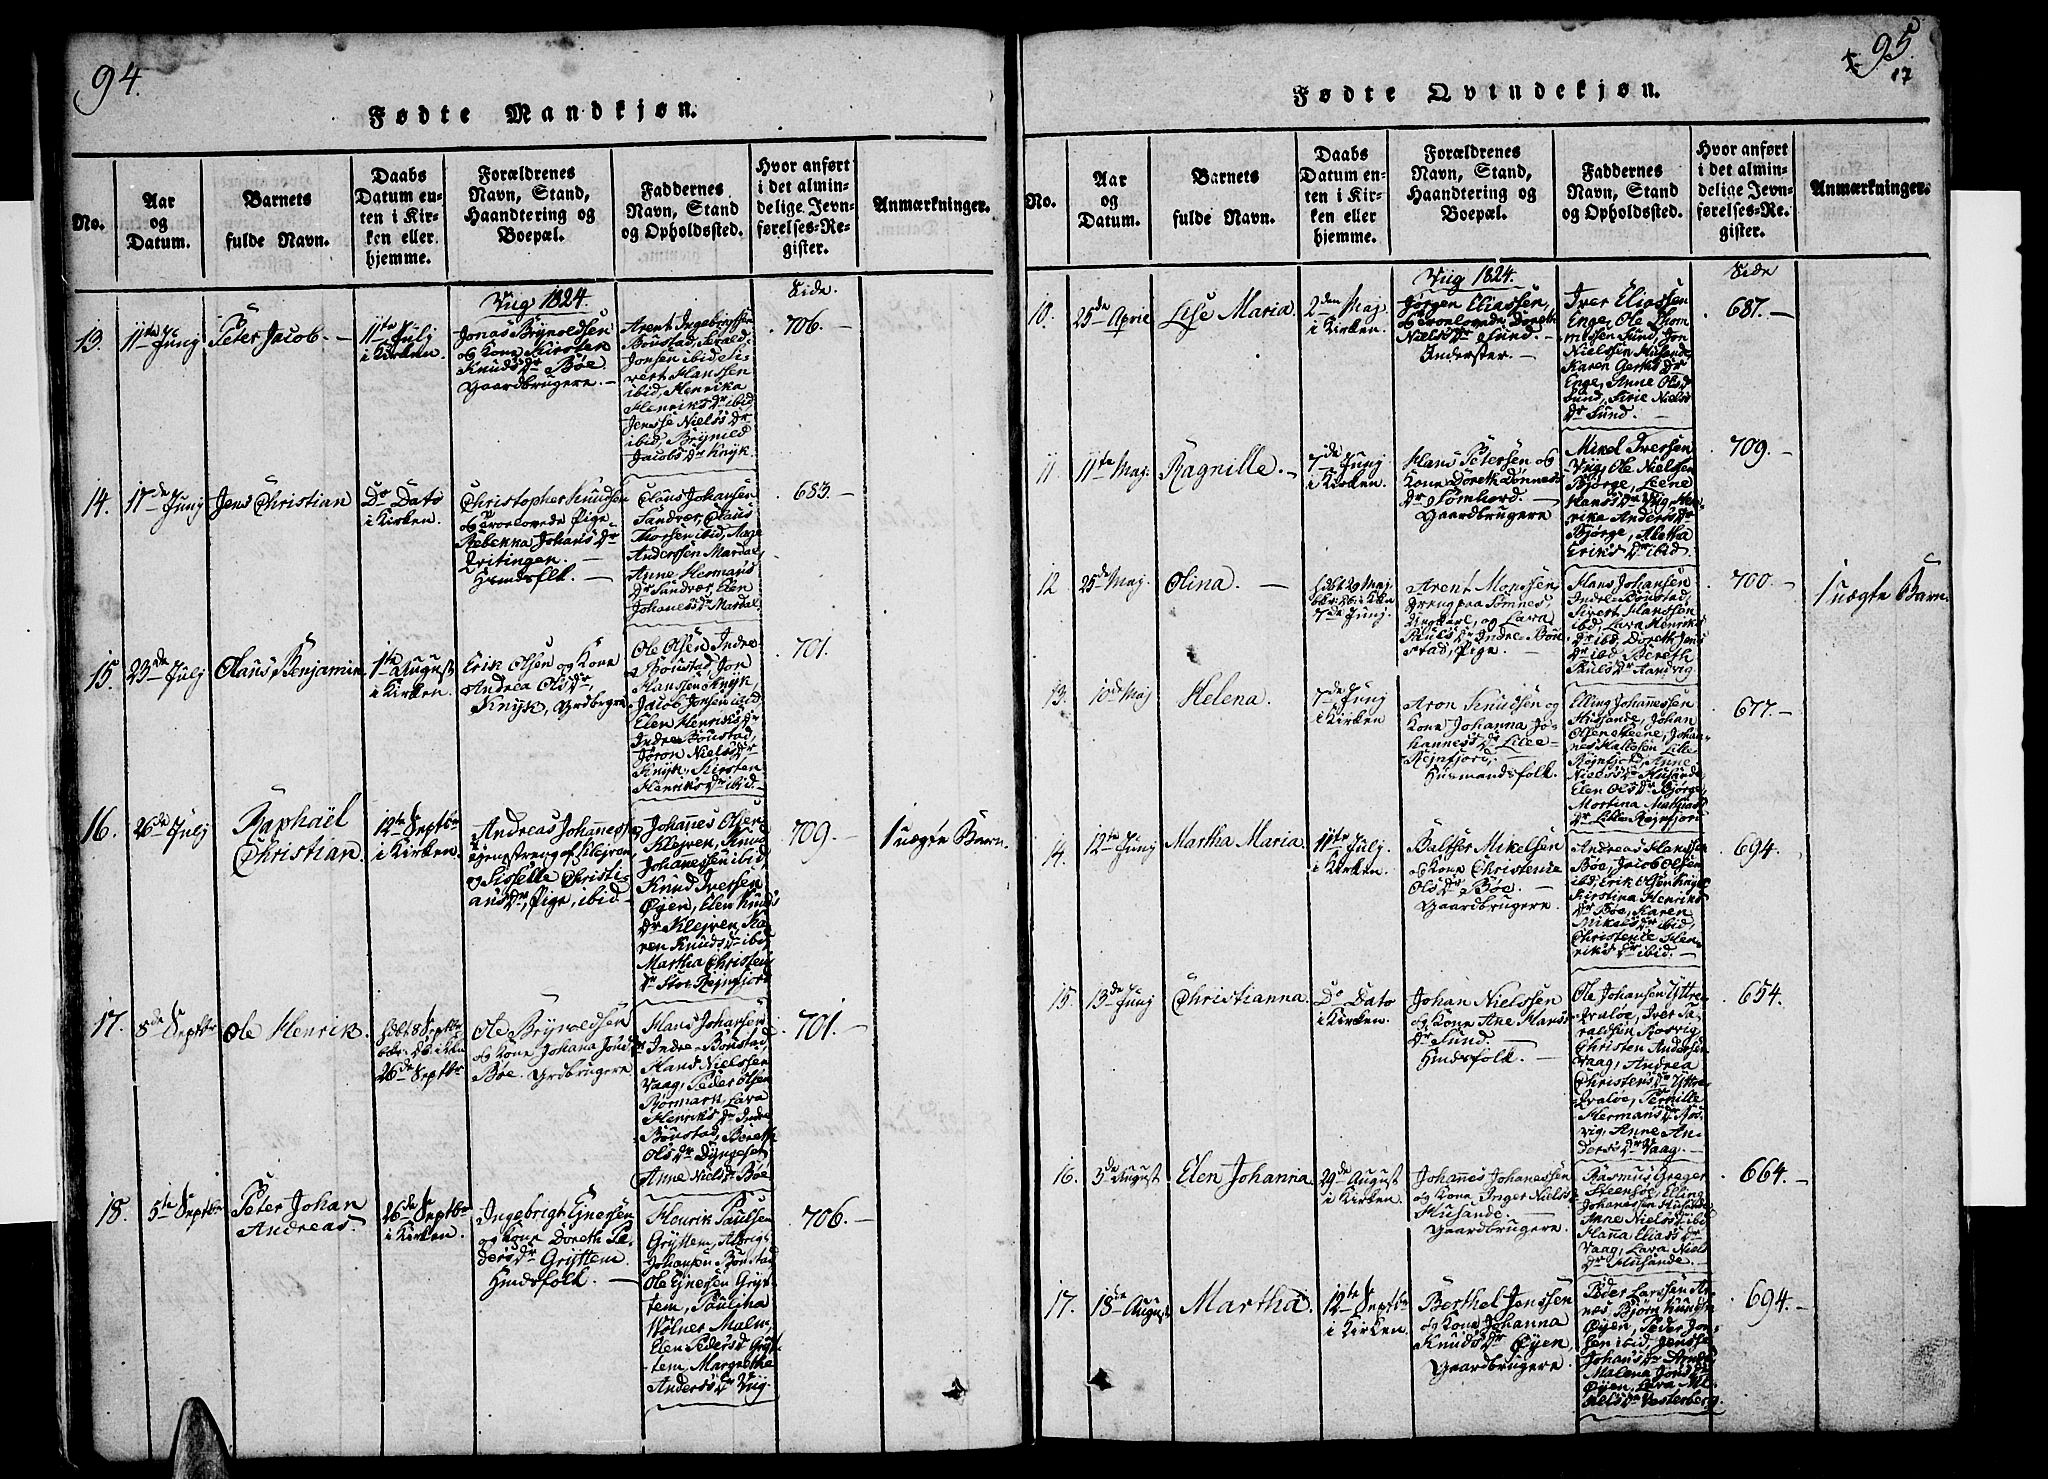 94.
Fødte Mandkjøn.
No.
Aar
og
Datum.
Barnets
fulde Navn.
Daabs
Datum en-
ten i Kir-
ken eller
hjemme.
Forældrenes
Navn, Stand,
Haandtering og
Boepæl.
Faddernes
Navn, Stand
og Opholdssted.
Hvor anført
i det almin-
delige Jevn-
førelses-Re-
gister.
Anmærkninger.
Vüg 1824.
Side.
13.
11te Junj
Peter Jacob.
11te Julj
i Kirken.
Jonas Brynoldsen
og Kone Kirsten
Knuds Dr Bøe
Gaardbrugere.
Arent Ingebrigtsen
Boustad, Harald
Jonsen ibid, Si-
vert Hanssen
ibid, Henrika
Henriks Dr ibid,
Jensse Niels Dr
ibid, Brynild
Jacobs Dr Knyk.
706.
14.
17de Junj
Jens Christian
Do Dato
i Kirken.
Christopher Knudsen
og trovlovede Pige
Rebekka Johans Dr
Qvitingen.
Husmdsflk.
Claus Johansen
Sandvær, Claus
Thorsen ibid, Mage
Anderssen Mardal,
Anne Hermans
Dr Sandvær, Elen
Johanes Dr Mardal.
683.
15.
23de Julj
Claus Benjamin
1te August
i Kirken.
Erik Olsen og Kone
Andrea Ols Dr,
Knyk, Grdbrgre
Ole Olsen Indre
Boustad, Jon
Hanssen Knyk,
Jacob Jonsen ibid,
Elen Henriks Dr
Indre Boustad,
Joron Niels Dr
Knyk, Kirsten
Henriks Dr ibid.
701.
16.
26de Julj
Raphaël
Christian.
12te Septbr
i Kirken.
Andreas Johannessen
Tjenstdreng af Klejven,
og Sisselle Christi-
ans Dr, Pige, ibid
Johannes Olsen
Klejven, Knud
Johanessen ibid,
Knud Iversen
Øyen, Elen Knuds
Dr Klejven, Ka-
ren Knuds Dr ibid,
Martha Christens
Dr Stor Rejnfjord
709.
1 uægte Barn.
17.
8de Septbr
Ole Henrik.
hdbt 8 Septbr
bekr. Db. i Kken
26de Septbr
Ole Brynoldsen
og Kone Johana Jons Dr
Bøe. Grdbrugere
Hans Johansen
Indre-Boustad,
Hans Nielssen
Vaag, Peder Olsen
Bormark, Lava
Henriks Dr Indre
Boustad, Bereth
Ols Dr Dyngeset
Anne Niels Dr Bøe
701.
18.
5te Septbr
Peter Johan
Andreas
26de Septbr
i Kirken.
Ingebrigt Einersen
og Kone Doreth Pe-
ders Dr Gryttem
Hmdsfolk.
Henrik Paulsen
Gryttem, Albrigt
Johansen Boustad
Ole Einersen Gryt-
tem, Paulina
Wolner Malm,
Elen Peders Dr Gryt-
tem, Margrethe
Anders Dr Vüg.
706.
95.
17
Fødte Qvindekjøn.
No.
Aar
og
Datum.
Barnets
fulde Navn.
Daabs
Datum en-
ten i Kir-
ken eller
hjemme.
Forældrenes
Navn, Stand,
Haandtering og
Boepæl.
Faddernes
Navn, Stand
og Opholdssted.
Hvor anført
i det almin-
delige Jevn-
førelses-Re-
gister.
Anmærkninger.
Vüg 1824.
Side
10.
25de April
Lise Maria
2den Maj
i Kirken.
Jørgen Eliassen,
og trovlovede Doreth
Niels Dr Sund.
Inderster.
Iver Eliassen
Enge, Ole Thom-
messen Sund, Jon
Nielssen Husende,
Karen Gerts Dr
Enge, Anne Ols Dr
Sund, Sirie Niels
Dr Sund.
687.
11.
11te Maj.
Ragnille.
7de Junj
i Kirken.
Hans Petersen og
Kone Doreth Donnes
Dr Sømhord.
Gaardbrugere
Mikel Iverssen
Vüg, Ole Nielsen
Bjørge, Leene
Hans Dr Vüg, Hen-
rika Anders Dr
Bjørge, Aletha
Eriks Dr ibid.
709.
12
25de Maj.
Olina.
hdbt 29 Maj
bekr. Db. i Kken
7de Junj.
Arent Monssen
Dreng paa Sømnes,
Ungkarl, og Lava
Pauls Dr Indre Bou-
stad, Pige.
Hans Johansen
Indre Boustad,
Sivert Hanssen
ibid, Lava Henriks
Dr ibid, Doreth Jens
Dr ibid, Bereth
Pauls Dr Sandvig
700.
1 uægte Barn.
13.
10de Maj
Helena.
7de Junj
i Kirken
Aron Knudsen og
Kone Johanna Jo-
hannes Dr Lille-
Rejnfjord,
Husmandsfolk.
Elling Johannessen
Husande, Johan
Olsen Steene, Johan-
nes Hallesen Lille
Rejnfjord, Anne
Niels Dr Husande,
Elen Ols Dr Bjørge,
Mortina Mathias
Dr Lille Rejnfjord
677.
14.
12te Junj
Martha Maria
11te Julj.
i Kirken.
Baltser Mikelsen
og Kone Christence
Ols Dr Bøe.
Gaardbrugere.
Andreas Hanssen
Bøe, Jacob Olsen
ibid, Erik Olsen Knyk
Kirstina Henriks
Dr Bøe, Karen
Mikels Dr ibid,
Christence Hen-
riks Dr ibid.
694.
15.
13de Junj
Christianna.
Do Dato
i Kirken.
Johan Nielssen
og Kone Ane Hans
Dr Sund.
Hmdsfolk.
Ole Johansen Yttre-
Qvaloe, Iver Ha-
raldsen Rosvig,
Christen Andersen
Vaag, Andrea
Christens Dr Yttre-
Qvaloe, Pernille
Hermans Dr Ros-
vig, Anne An-
ders Dr Vaag.
654.
16.
3de August
Elen Johanna
29de August
i Kirken.
Johannes Johanessen
og Kone Inger Niels Dr
Husande.
Gaardbrugere.
Rasmus Greger
Steensøe, Elling
Johanessen Husande
Anne Niels Dr ibid
Hanna Elias Dr
Vaag, Lava Niels
Dr Husande.
664.
17.
18de August
Martha.
12te Septbr
i Kirken.
Berthel Jenssen
og Kone Johanna
Knuds Dr Øyen
Gaardbrugere.
Peder Larssen Aar-
nes, Bjørn Knudsen
Øyen, Peder Jon-
sen ibid, Jensse
Johans Dr Aarnes
Malena Jons Dr
Øyen, Lava Mi-
kels Dr Vesterberg.
694.